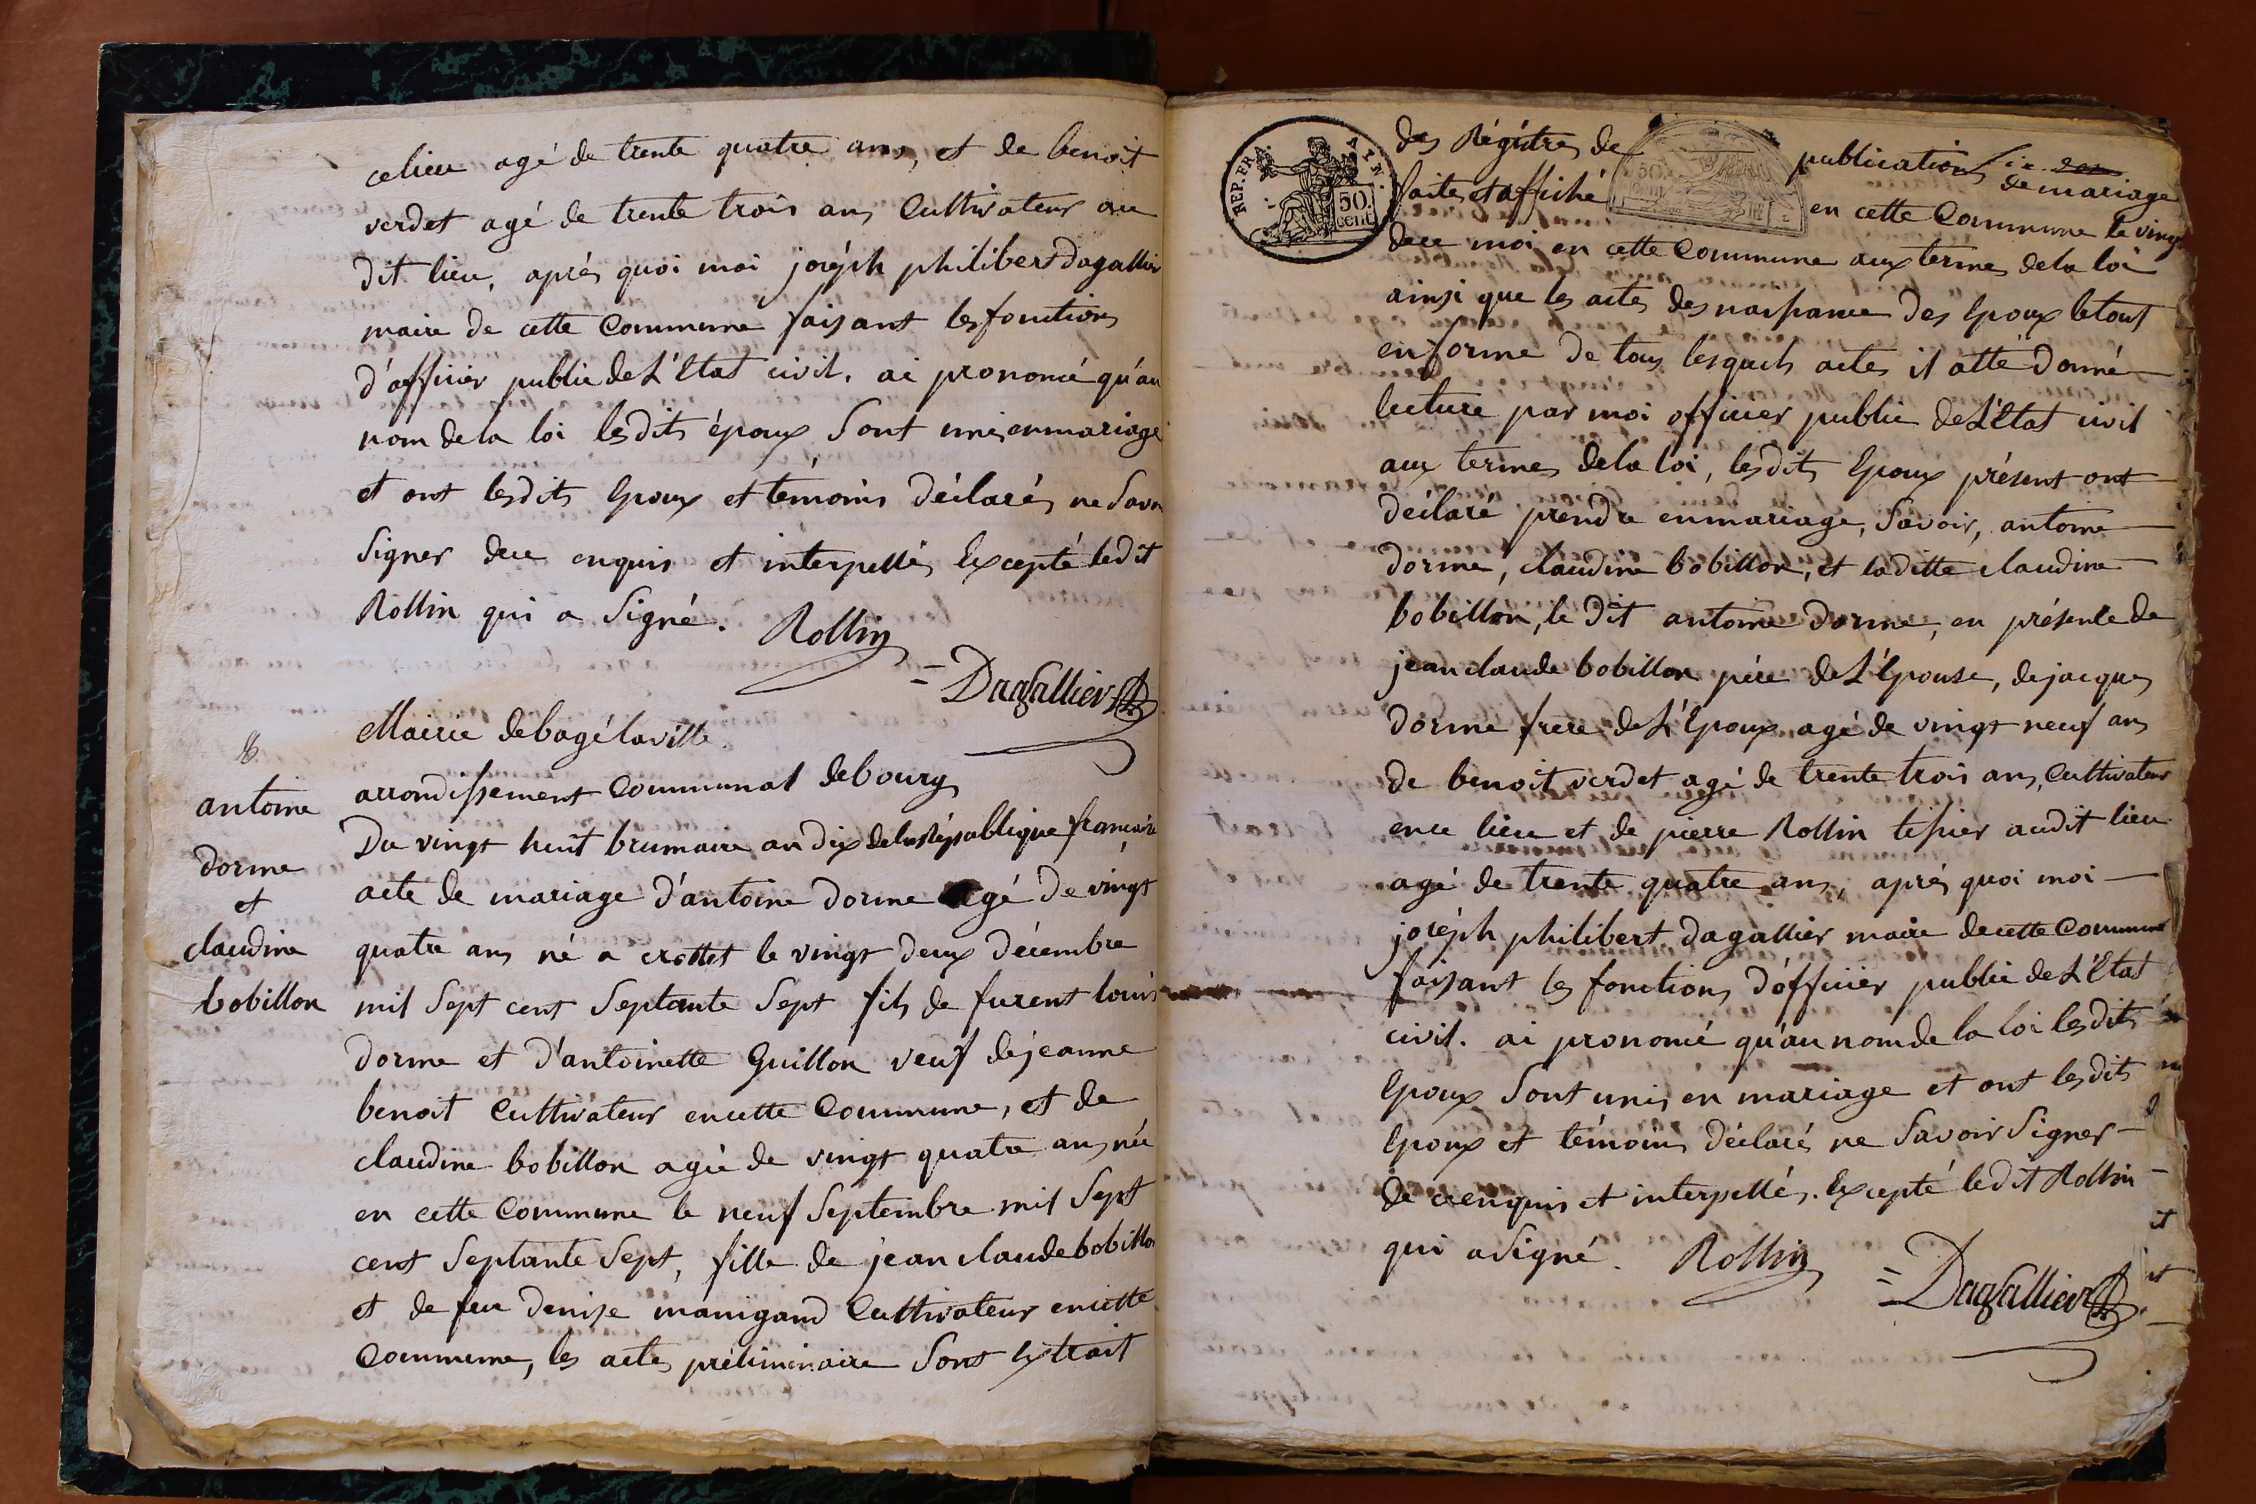 ce lieu agé de trente quatre ans, et de benoit
verdet agé de trente trois ans Cultivateur au
dit lieu, après quoi moi joséph philibert Dagallier
maire de cette Commune faisant les fonctions
d'officier public de L'Etat civil. ai prononcé qu'au
nom de la loi les dits époux Sont unis en mariage
et ont les dits Epoux et témoins déclarés ne Savoir
Signer de ce enquis et interpellés Excepté le dit
Rollin qui a Signé. Rollin
= Dagallier
Mairie de bagé la ville
arrondissement Communal de bourg
8
antoine
dorme
et
claudine
bobillon
Du vingt huit brumaire an dix de la République francaise
acte de mariage d'antoine dorme agé de vingt
quatre ans né a crottet le vingt deux décembre
mil Sept cent Septante Sept fils de furent louis
dorme et d'antoinette Guillon veuf de jeanne
benoit Cultivateur en cette Commune, et de
claudine bobillon agée de vingt quatre ans née
en cette Commune le neuf Septembre mil Sept
cent Septante Sept, fille de jean claude bobillon
et de feue denise manigand Cultivateur en cette
Commune, les actes préliminaire Sont Extrait
REP. FRA. AIN.
50. cent
des Régitres de publications de mariage
faites et affiché en cette Commune le vingt
de ce moi en cette Commune aux termes de la loi
ainsi que les actes des naissance des Epoux le tout
en forme de tous lesquels actes il atté donné
lecture par moi officier public de L'Etat civil
aux termes de la loi, les dits Epoux présent ont
déclaré prendre en mariage, Savoir, antoine
dorme, claudine bobillon, et la ditte claudine
bobillon, le dit antoine dorme, en présente de
jean claude bobillon père de L'Epouse, de jacques
dorme frere de L'Epoux agé de vingt neuf ans
de benoit verdet agé de trente trois ans, Cultivateur
en ce lieu et de pierre Rollin tissier audit lieu
agé de trente quatre ans, après quoi moi
joséph philibert dagallier maire de cette Commune
faisant les fonctions d'officier public de L'Etat
civil. ai prononcé qu'au nom de la loi les dits
Epoux Sont unis en mariage et ont les dits
Epoux et témoins déclaré ne Savoir Signer
de ce enquis et interpellés. Excepté le dit Rollin
qui a Signé. Rollin
= Dagallier